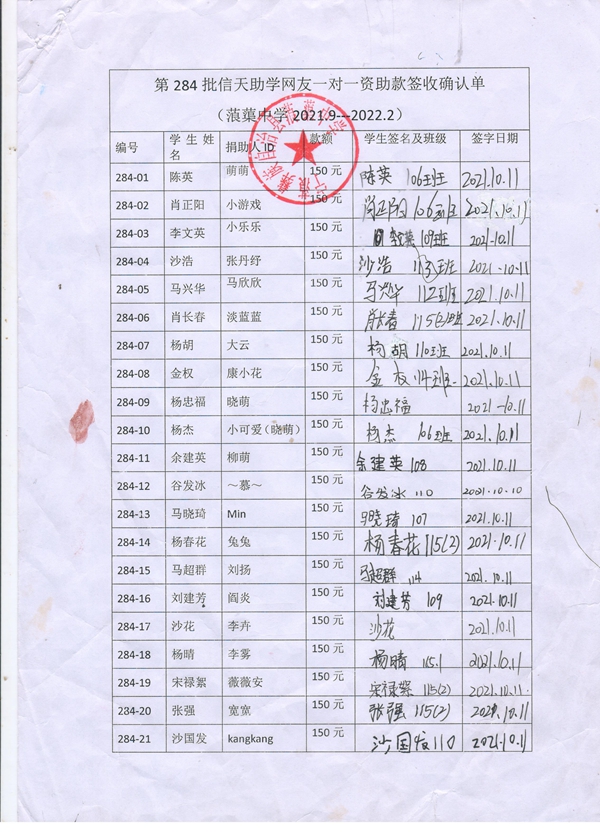 第 284 批信天助学网友一对一资助款签收确认单
（蒗蕖中学 2021.9---2022.2）
编号 学生姓名 捐助人 ID 款额 学生签名及班级 签字日期
284-01 陈英 萌萌 150 元 陈英 106班 2021.10.11
284-02 肖正阳 小游戏 150 元 肖正阳 106班 2021.10.11
284-03 李文英 小乐乐 150 元 109班 2021-10.11
284-04 沙浩 张丹纾 150 元 沙浩 113班 2021-10-11
284-05 马兴华 马欣欣 150 元 马兴华 112班 2021.10.11
284-06 肖长春 淡蓝蓝 150 元 2021.10.11
284-07 杨胡 大云 150 元 杨胡 110班 2021.10.11
284-08 金权 康小花 150 元 金权 114班 2021.10.11
284-09 杨忠福 晓萌 150 元 杨忠福 2021-10.11
284-10 杨杰 小可爱（晓萌） 150 元 杨杰 106班 2021.10.11
284-11 余建英 柳萌 150 元 余建英 108 2021.10.11
284-12 谷发冰 ～慕～ 150 元 谷发冰 110 2021.10.10
284-13 马晓琦 Min 150 元 马晓琦 107 2021.10.11
284-14 杨春花 兔兔 150 元 杨春花 115(2) 2021.10.11
284-15 马超群 刘扬 150 元 马超群 114 2021.10.11
284-16 刘建芳 阎炎 150 元 刘建芳 109 2021.10.11
284-17 沙花 李卉 150 元 沙花 2021.10.11
284-18 杨晴 李雾 150 元 杨晴 115.1 2021.10.11
284-19 宋禄絮 薇薇安 150 元 宋禄絮 115(2) 2021.10.11.
284-20 张强 宽宽 150 元 张强 115(2) 2021.10.11
284-21 沙国发 kangkang 150 元 沙国发 110 2021.10.11